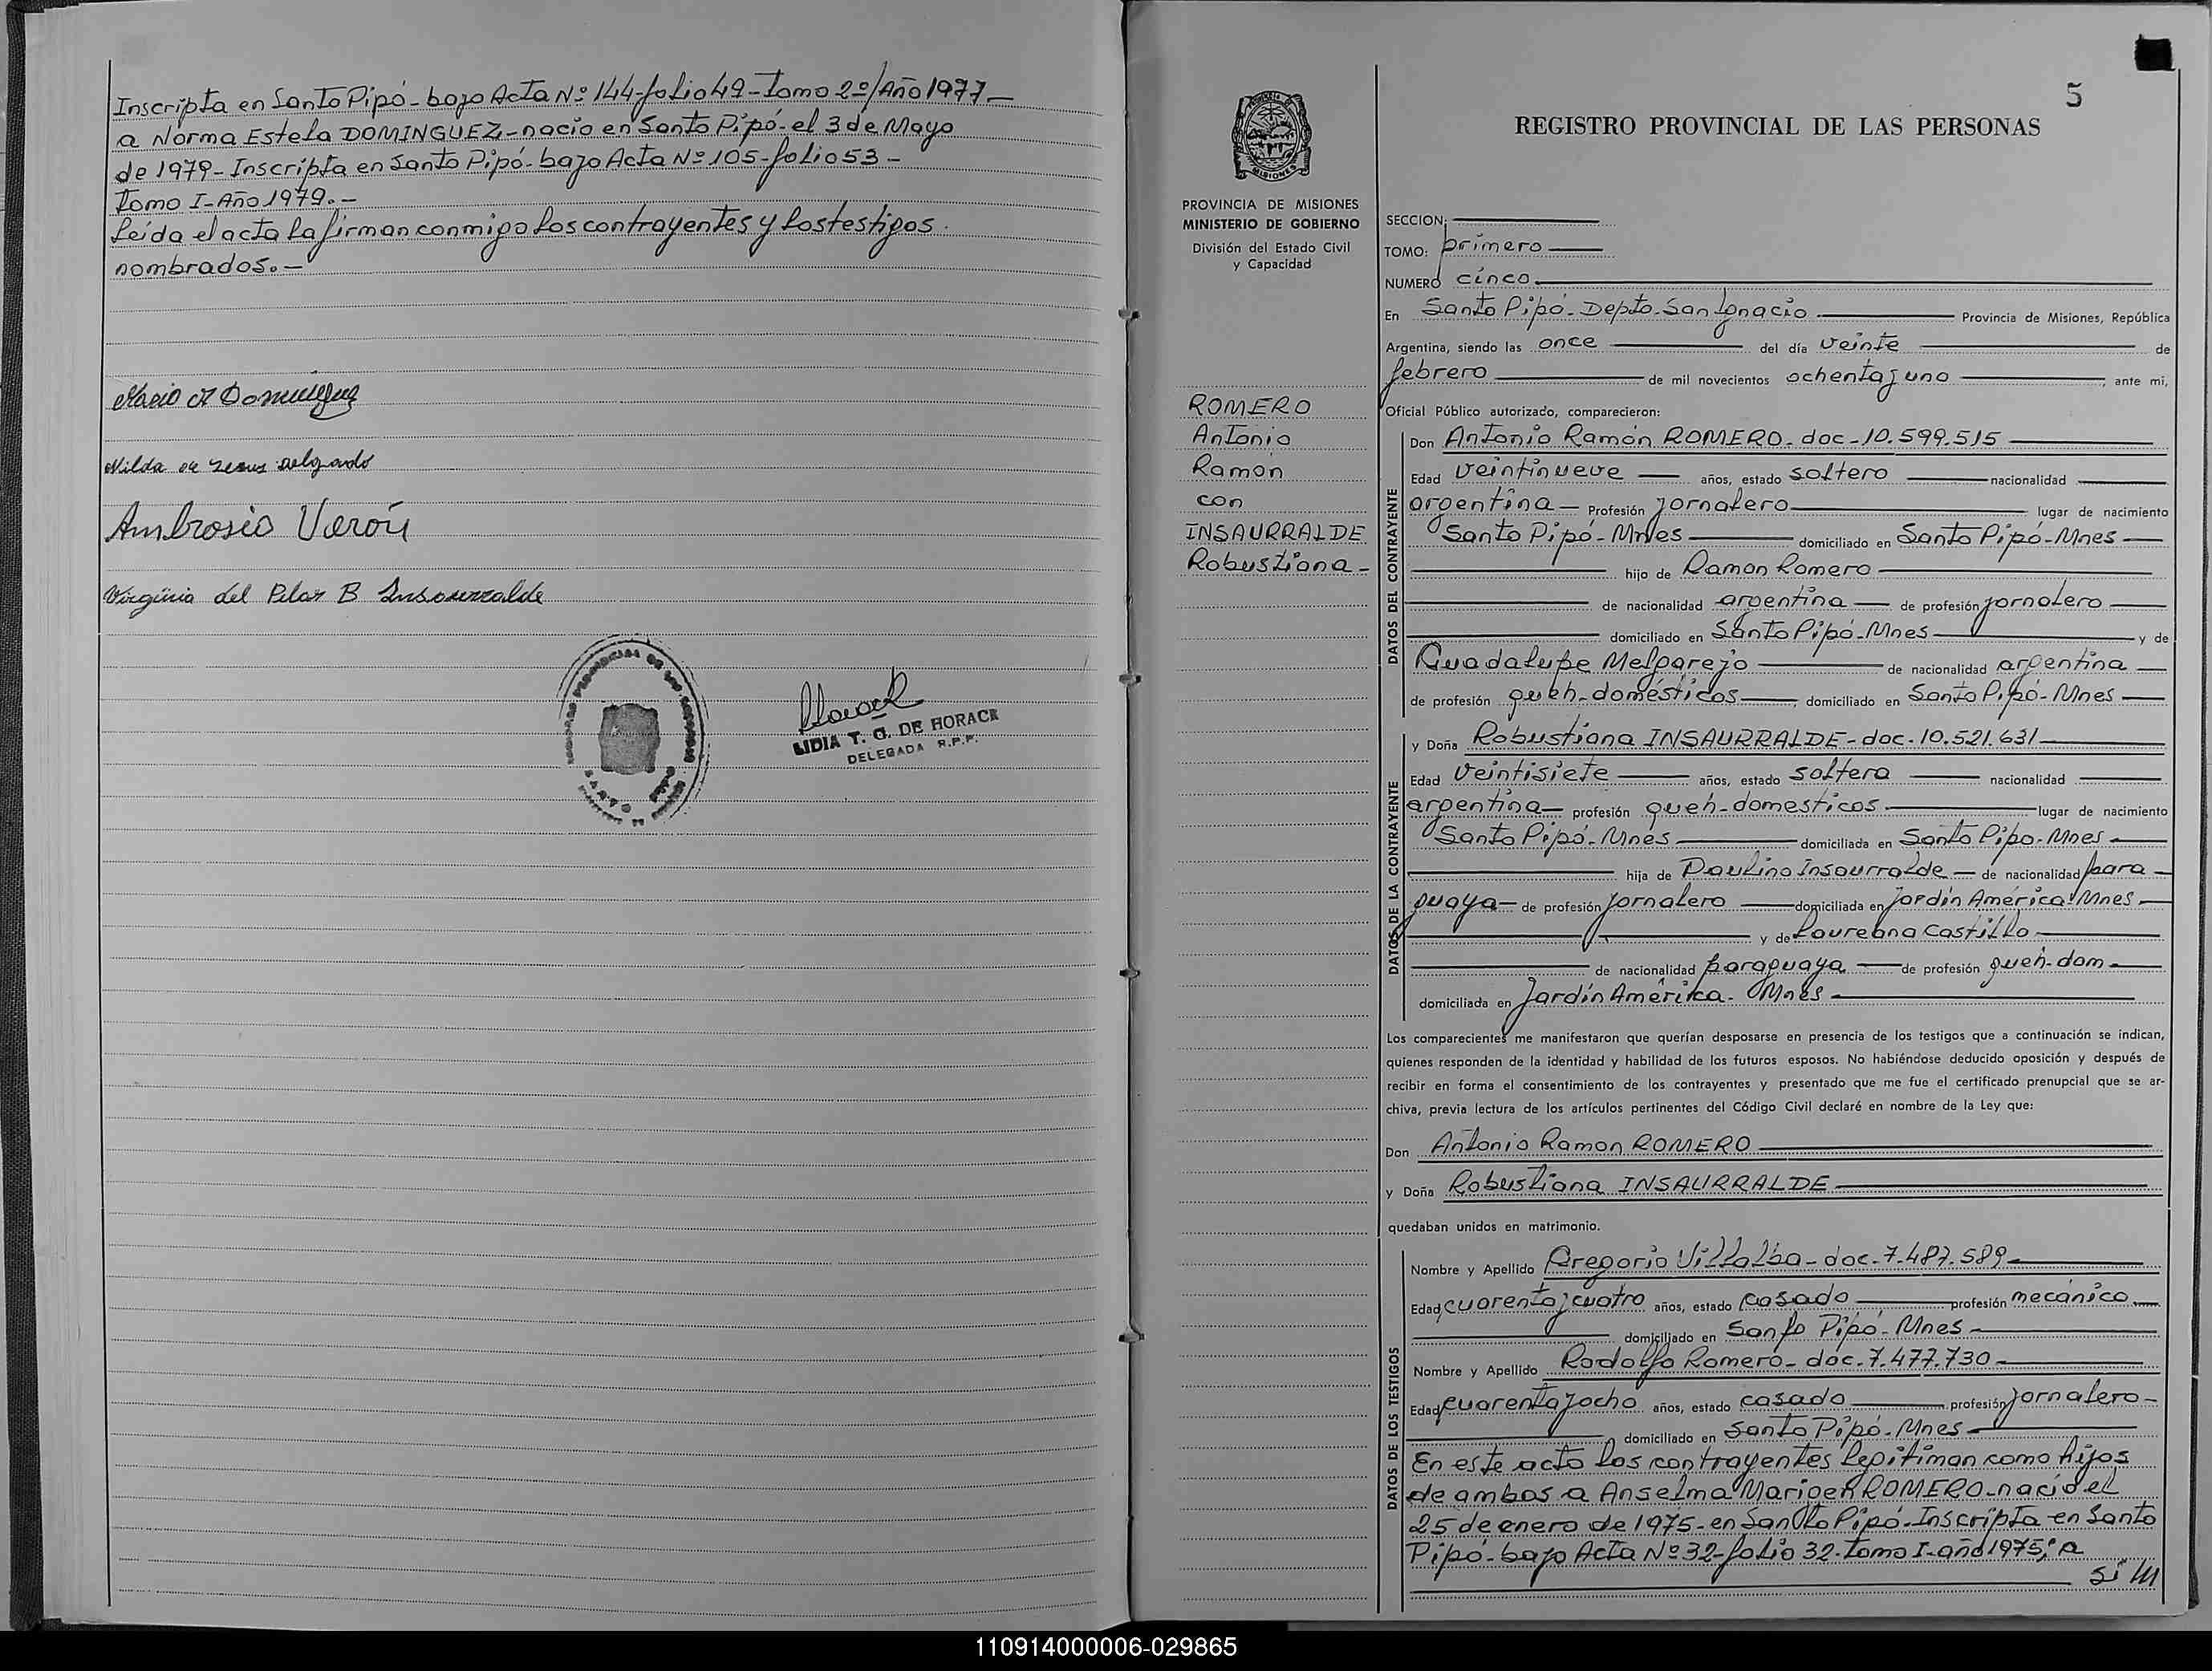 Inscripta en Santo Pipó - bajo Acta Nº 144 - folio 49 - Tomo 2º/Año 1977 -
a Norma Estela DOMINGUEZ - nacio en Santo Pipó - el 3 de Mayo
de 1979 - Inscripta en Santo Pipó - bajo Acta Nº 105 - folio 53 -
Tomo I - Año 1979. -
Leída el acta la firman conmigo los contrayentes y los testigos
nombrados. -
Nilda de Jesus Delgado
Ambrosio Verón
Virginia del Pilar B Insaurralde
LIDIA T. G. DE HORACK
DELEGADA R.P.P.
5
REGISTRO PROVINCIAL DE LAS PERSONAS
PROVINCIA DE MISIONES
MINISTERIO DE GOBIERNO
División del Estado Civil
y Capacidad
ROMERO
Antonio
Ramón
con
INSAURRALDE
Robustiana -
SECCION:
TOMO: primero
NUMERO cinco
En Santo Pipó - Depto - San Ignacio Provincia de Misiones, República
Argentina, siendo las once del día veinte de
febrero de mil novecientos ochenta y uno, ante mi,
Oficial Público autorizado, comparecieron:
DATOS DEL CONTRAYENTE
Don Antonio Ramón ROMERO - doc - 10.599.515
Edad veintinueve años, estado soltero nacionalidad
argentina - Profesión jornalero lugar de nacimiento
Santo Pipó - Mnes domiciliado en Santo Pipó - Mnes
hijo de Ramon Romero
de nacionalidad argentina de profesión jornalero
domiciliado en Santo Pipó - Mnes y de
Guadalupe Melgarejo de nacionalidad argentina
de profesión queh - domésticos, domiciliado en Santo Pipó - Mnes
DATOS DE LA CONTRAYENTE
y Doña Robustiana INSAURRALDE - doc - 10.521.631
Edad veintisiete años, estado soltera nacionalidad
argentina - profesión queh - domesticos lugar de nacimiento
Santo Pipó - Mnes domiciliada en Santo Pipo - Mnes
hija de Paulino Insaurralde - de nacionalidad para
guaya - de profesión jornalero domiciliada en Jardín América Mnes
y de Laureana Castillo
de nacionalidad paraguaya de profesión queh - dom
domiciliada en Jardín América - Mnes
Los comparecientes me manifestaron que querían desposarse en presencia de los testigos que a continuación se indican,
quienes responden de la identidad y habilidad de los futuros esposos. No habiéndose deducido oposición y después de
recibir en forma el consentimiento de los contrayentes y presentado que me fue el certificado prenupcial que se ar-
chiva, previa lectura de los artículos pertinentes del Código Civil declaré en nombre de la Ley que:
Don Antonio Ramon ROMERO
y Doña Robustiana INSAURRALDE
quedaban unidos en matrimonio.
DATOS DE LOS TESTIGOS
Nombre y Apellido Gregorio Villalba - doc - 7.487.589
Edad cuarenta y cuatro años, estado casado profesión mecánico
domiciliado en Santo Pipó - Mnes
Nombre y Apellido Rodolfo Romero - doc - 7.477.730
Edad cuarenta y ocho años, estado casado profesión jornalero -
domiciliado en Santo Pipó - Mnes
En este acto los contrayentes legitiman como hijos
de ambos a Anselma ROMERO - nació el
25 de enero de 1975 - en Santo Pipó - Inscripta en Santo
Pipó - bajo Acta Nº 32 - folio 32 - Tomo I - año 1975; a
110914000006-029865